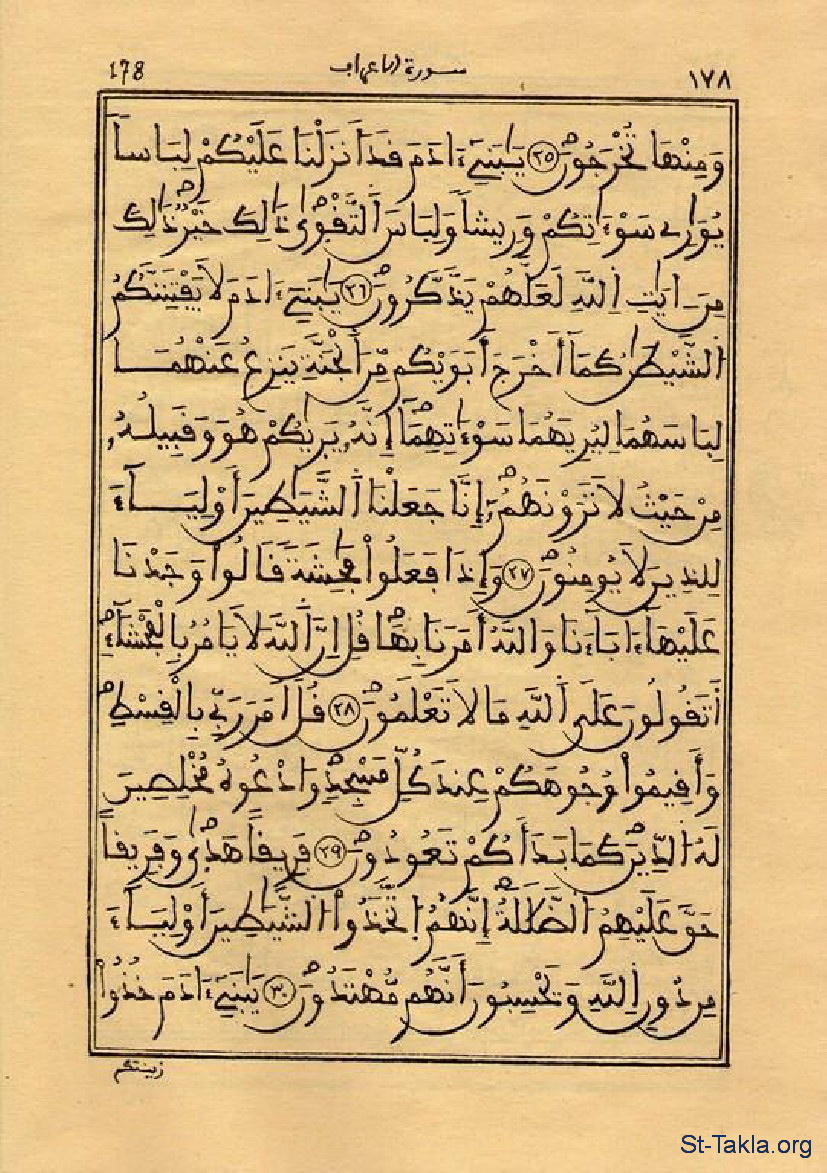 178 سورة الاعراف ١٧٨
وَمِنْهَا تُخْرَجُونَ ٢٥ يَٰبَنِےٓ ءَادَمَ قَدَ اَنزَلْنَا عَلَيْكُمْ لِبَاساٗ
يُوَٰرِے سَوْءَٰتِكُمْ وَرِيشاٗ وَلِبَاسَ اَ۬لتَّقْو۪ىٰ ذَٰلِكَ خَيْرٞ ذَٰلِكَ
مِنَ اٰيَٰتِ اِ۬للَّهِ لَعَلَّهُمْ يَذَّكَّرُونَ ٢٦ يَٰبَنِےٓ ءَادَمَ لَا يَفْتِنَنَّكُمُ
اُ۬لشَّيْطَٰنُ كَمَآ أَخْرَجَ أَبَوَيْكُم مِّنَ اَ۬لْجَنَّةِ يَنزِعُ عَنْهُمَا
لِبَاسَهُمَا لِيُرِيَهُمَا سَوْءَٰتِهِمَآ إِنَّهُۥ يَر۪يٰكُمْ هُوَ وَقَبِيلُهُۥ
مِنْ حَيْثُ لَا تَرَوْنَهُمُۥٓ إِنَّا جَعَلْنَا اَ۬لشَّيَٰطِينَ أَوْلِيَآءَ
لِلذِينَ لَا يُومِنُونَ ٢٧ وَإِذَا فَعَلُواْ فَٰحِشَةٗ قَالُواْ وَجَدْنَا
عَلَيْهَآ ءَابَآءَنَا وَاللَّهُ أَمَرَنَا بِهَا قُلِ اِنَّ اَ۬للَّهَ لَا يَامُرُ بِالْفَحْشَآءِ
اَ۬تَقُولُونَ عَلَى اَ۬للَّهِ مَا لَا تَعْلَمُونَ ٢٨ قُلَ اَمَرَ رَبِّے بِالْقِسْطِ
وَأَقِيمُواْ وُجُوهَكُمْ عِندَ كُلِّ مَسْجِدٖ وَادْعُوهُ مُخْلِصِينَ
لَهُ اُ۬لدِّينَ كَمَا بَدَأَكُمْ تَعُودُونَ ٢٩ فَرِيقاً هَد۪ىٰ وَفَرِيقاً
حَقَّ عَلَيْهِمُ اُ۬لضَّلَٰلَةُ إِنَّهُمُ اُ۪تَّخَذُواْ اُ۬لشَّيَٰطِينَ أَوْلِيَآءَ
مِن دُونِ اِ۬للَّهِ وَيَحْسِبُونَ أَنَّهُم مُّهْتَدُونَ ٣٠ يَٰبَنِےٓ ءَادَمَ خُذُواْ
زينتكم
St-Takla.org